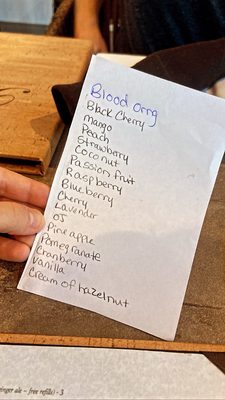 Blood orng
Black Cherry
mango
Peach
Strawberry
Coconut
Passion fruit
Raspberry
Blueberry
Cherry
Lavender
OJ
Pineapple
Pomegranate
Cranberry
Vanilla
Cream of hazelnut
ginger ale – free refills) - 3